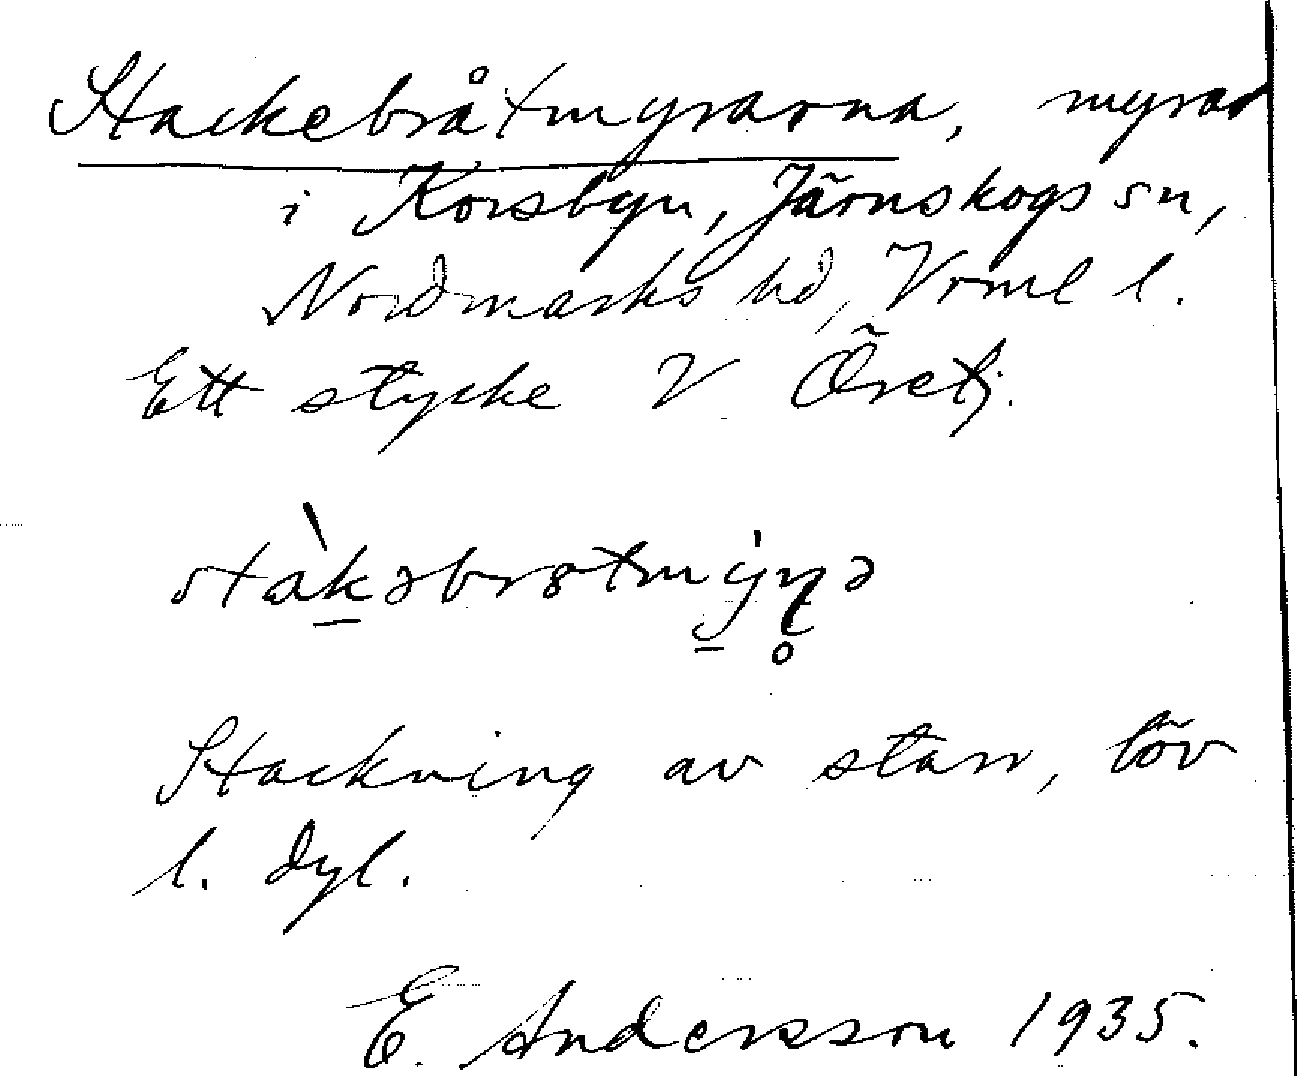 Stackebråtmyrarna, myrar
i Korsbyn, Järnskogs sn,
Nordmarks hd, Vrml l.
Ett stycke V Öretj.
Stackning av starr, löv
l. dyl.
E. Andersson 1935.